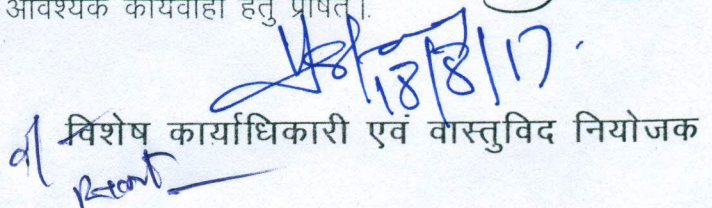 आवश्यक कार्यवाही हेतु प्रेषित।
18/8/17.
विशेष कार्याधिकारी एवं वास्तुविद नियोजक